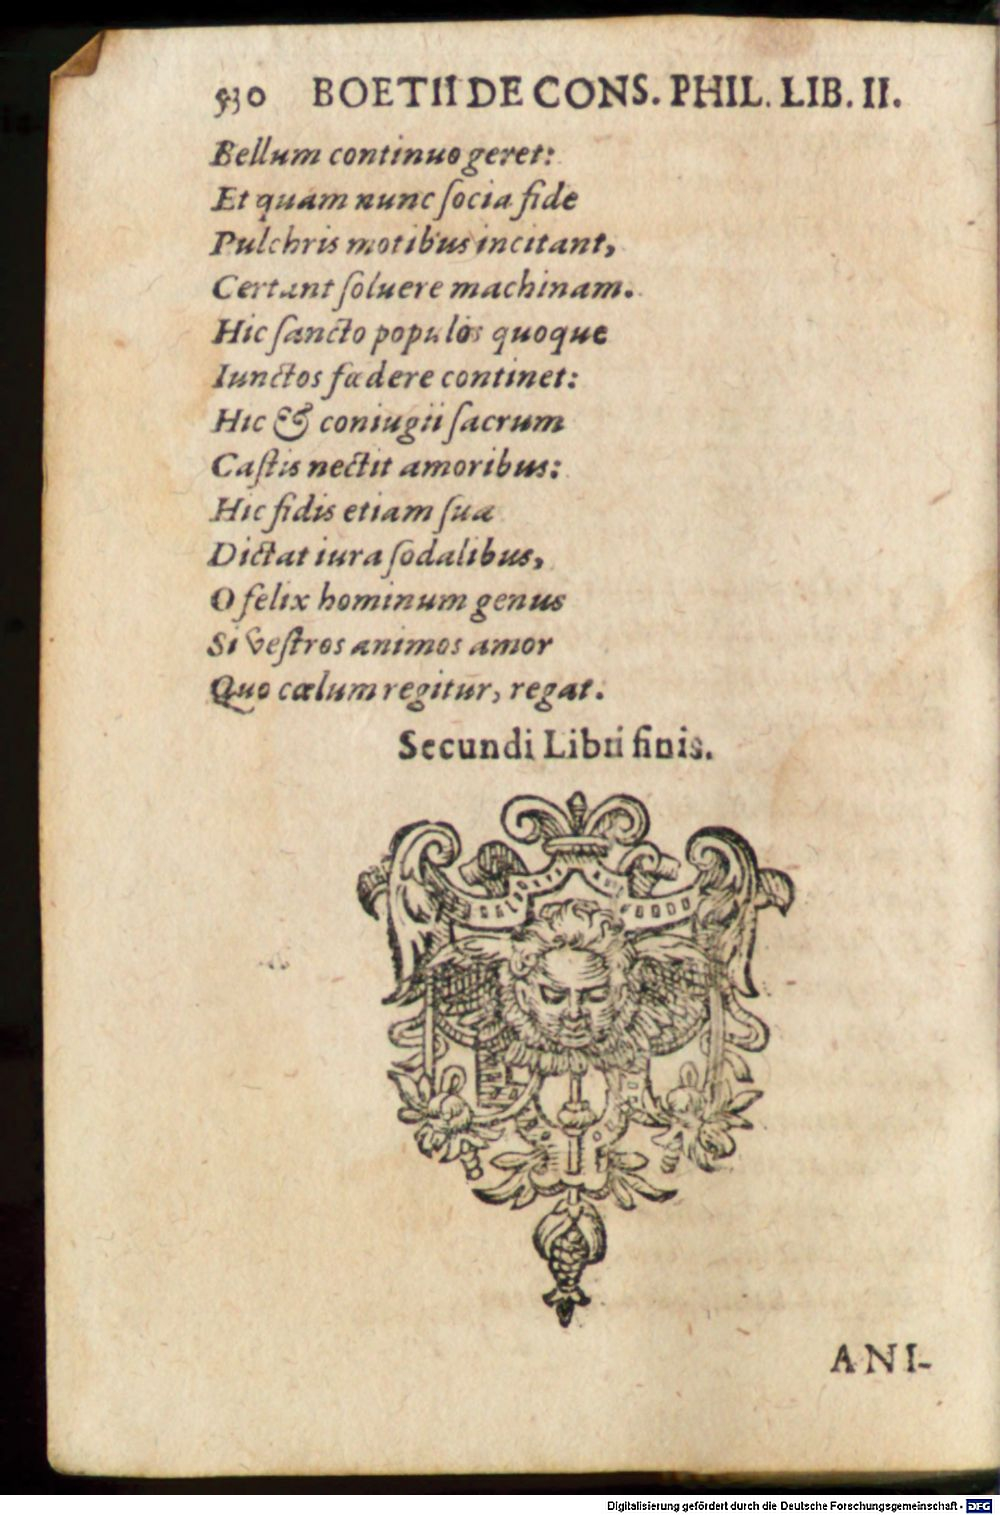 530 BOETII DE CONS. PHIL. LIB. II.
Bellum continuo geret:
Et quam nunc ſocia fide
Pulchris motibus incitant,
Certant ſoluere machinam.
Hic ſancto populos quoque
Iunctos fœdere continet:
Hic & coniugii ſacrum
Caſtis nectit amoribus:
Hic fidis etiam ſua
Dictat iura ſodalibus,
O felix hominum genus
Si veſtros animos amor
Quo cælum regitur, regat.
Secundi Libri finis.
ANI-
Digitalisierung gefördert durch die Deutsche Forschungsgemeinschaft - DFG